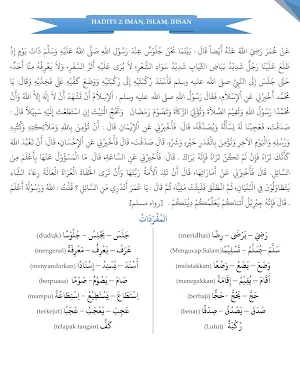 HADITS 2: IMAN, ISLAM, IHSAN
عَنْ عُمَرَ رَضِيَ اللهُ عَنْهُ أَيْضاً قَالَ : بَيْنَمَا نَحْنُ جُلُوْسٌ عِنْدَ رَسُوْلِ اللهِ صَلَّى اللهُ عَلَيْهِ وَسَلَّمَ ذَاتَ يَوْمٍ إِذْ
طَلَعَ عَلَيْنَا رَجُلٌ شَدِيْدُ بَيَاضِ الثِّيَابِ شَدِيْدُ سَوَادِ الشَّعْرِ، لاَ يُرَى عَلَيْهِ أَثَرُ السَّفَرِ، وَلاَ يَعْرِفُهُ مِنَّا أَحَدٌ،
حَتَّى جَلَسَ إِلَى النَّبِيِّ صلى الله عليه وسلم فَأَسْنَدَ رُكْبَتَيْهِ إِلَى رُكْبَتَيْهِ وَوَضَعَ كَفَّيْهِ عَلَى فَخِذَيْهِ وَقَالَ: يَا
مُحَمَّد أَخْبِرْنِي عَنِ الإِسْلاَمِ، فَقَالَ رَسُوْلُ اللهِ صلى الله عليه وسلم : الإِسْلاَمُ أَنْ تَشْهَدَ أَنْ لاَ إِلَهَ إِلاَّ اللهُ وَأَنَّ
مُحَمَّدًا رَسُوْلُ اللهِ وَتُقِيْمَ الصَّلاَةَ وَتُؤْتِيَ الزَّكاَةَ وَتَصُوْمَ رَمَضَانَ وَتَحُجَّ الْبَيْتَ إِنِ اسْتَطَعْتَ إِلَيْهِ سَبِيْلاً قَالَ :
صَدَقْتَ، فَعَجِبْنَا لَهُ يَسْأَلُهُ وَيُصَدِّقُهُ، قَالَ: فَأَخْبِرْنِي عَنِ الإِيْمَانِ قَالَ : أَنْ تُؤْمِنَ بِاللهِ وَمَلاَئِكَتِهِ وَكُتُبِهِ
وَرُسُلِهِ وَالْيَوْمِ الآخِرِ وَتُؤْمِنَ بِالْقَدَرِ خَيْرِهِ وَشَرِّهِ. قَالَ صَدَقْتَ، قَالَ فَأَخْبِرْنِي عَنِ الإِحْسَانِ، قَالَ: أَنْ تَعْبُدَ اللهَ
كَأَنَّكَ تَرَاهُ فَإِنْ لَمْ تَكُنْ تَرَاهُ فَإِنَّهُ يَرَاكَ . قَالَ: فَأَخْبِرْنِي عَنِ السَّاعَةِ، قَالَ: مَا الْمَسْؤُوْلُ عَنْهَا بِأَعْلَمَ مِنَ
السَّائِلِ. قَالَ فَأَخْبِرْنِي عَنْ أَمَارَاتِهَا، قَالَ أَنْ تَلِدَ الأَمَةُ رَبَّتَهَا وَأَنْ تَرَى الْحُفَاةَ الْعُرَاةَ الْعَالَةَ رِعَاءَ الشَّاءِ
يَتَطَاوَلُوْنَ فِي الْبُنْيَانِ، ثُمَّ انْطَلَقَ فَلَبِثْتُ مَلِيًّا، ثُمَّ قَالَ : يَا عُمَرَ أَتَدْرِي مَنِ السَّائِلِ ؟ قُلْتُ : اللهُ وَرَسُوْلُهُ أَعْلَمَ
. قَالَ فَإِنَّهُ جِبْرِيْلُ أَتـَاكُمْ يُعَلِّمُكُمْ دِيْنَكُمْ . (رواه مسلم)
المُفْرَدَاتُ
رَضِيَ – يَرْضَى – رِضًا (meridhai) جَلَسَ – يَجْلِسُ – جُلُوْسًا (duduk)
سَلَّمَ–يُسَلِّمُ – تَسْلِيْمًا (Mengucap Salam) عَرَفَ – يَعْرِفُ – مَعْرِفَةً (mengenal)
وَضَعَ – يَضَعُ – وَضْعًا (meletakkan) أَسْنَدَ – يُسْنِدُ – إِسْنَادًا (menyandarkan)
أَقَامَ – يُقِيْمُ – إِقَامَةً (menegakkan) صَامَ – يَصُوْمُ – صَوْمًا (berpuasa)
حَجَّ – يَحُجُّ – حَجًّا (berhaji) اِسْتَطَاعَ – يَسْتَطِيْعُ – اِسْتِطَاعَةً (mampu)
صَدَقَ – يَصْدُقُ – صِدْقًا (benar) عَجِبَ – يَعْجَبُ – عَجَبًا (terkejut)
رُكْبَةٌ (Lutut) كَفٌّ (telapak tangan)